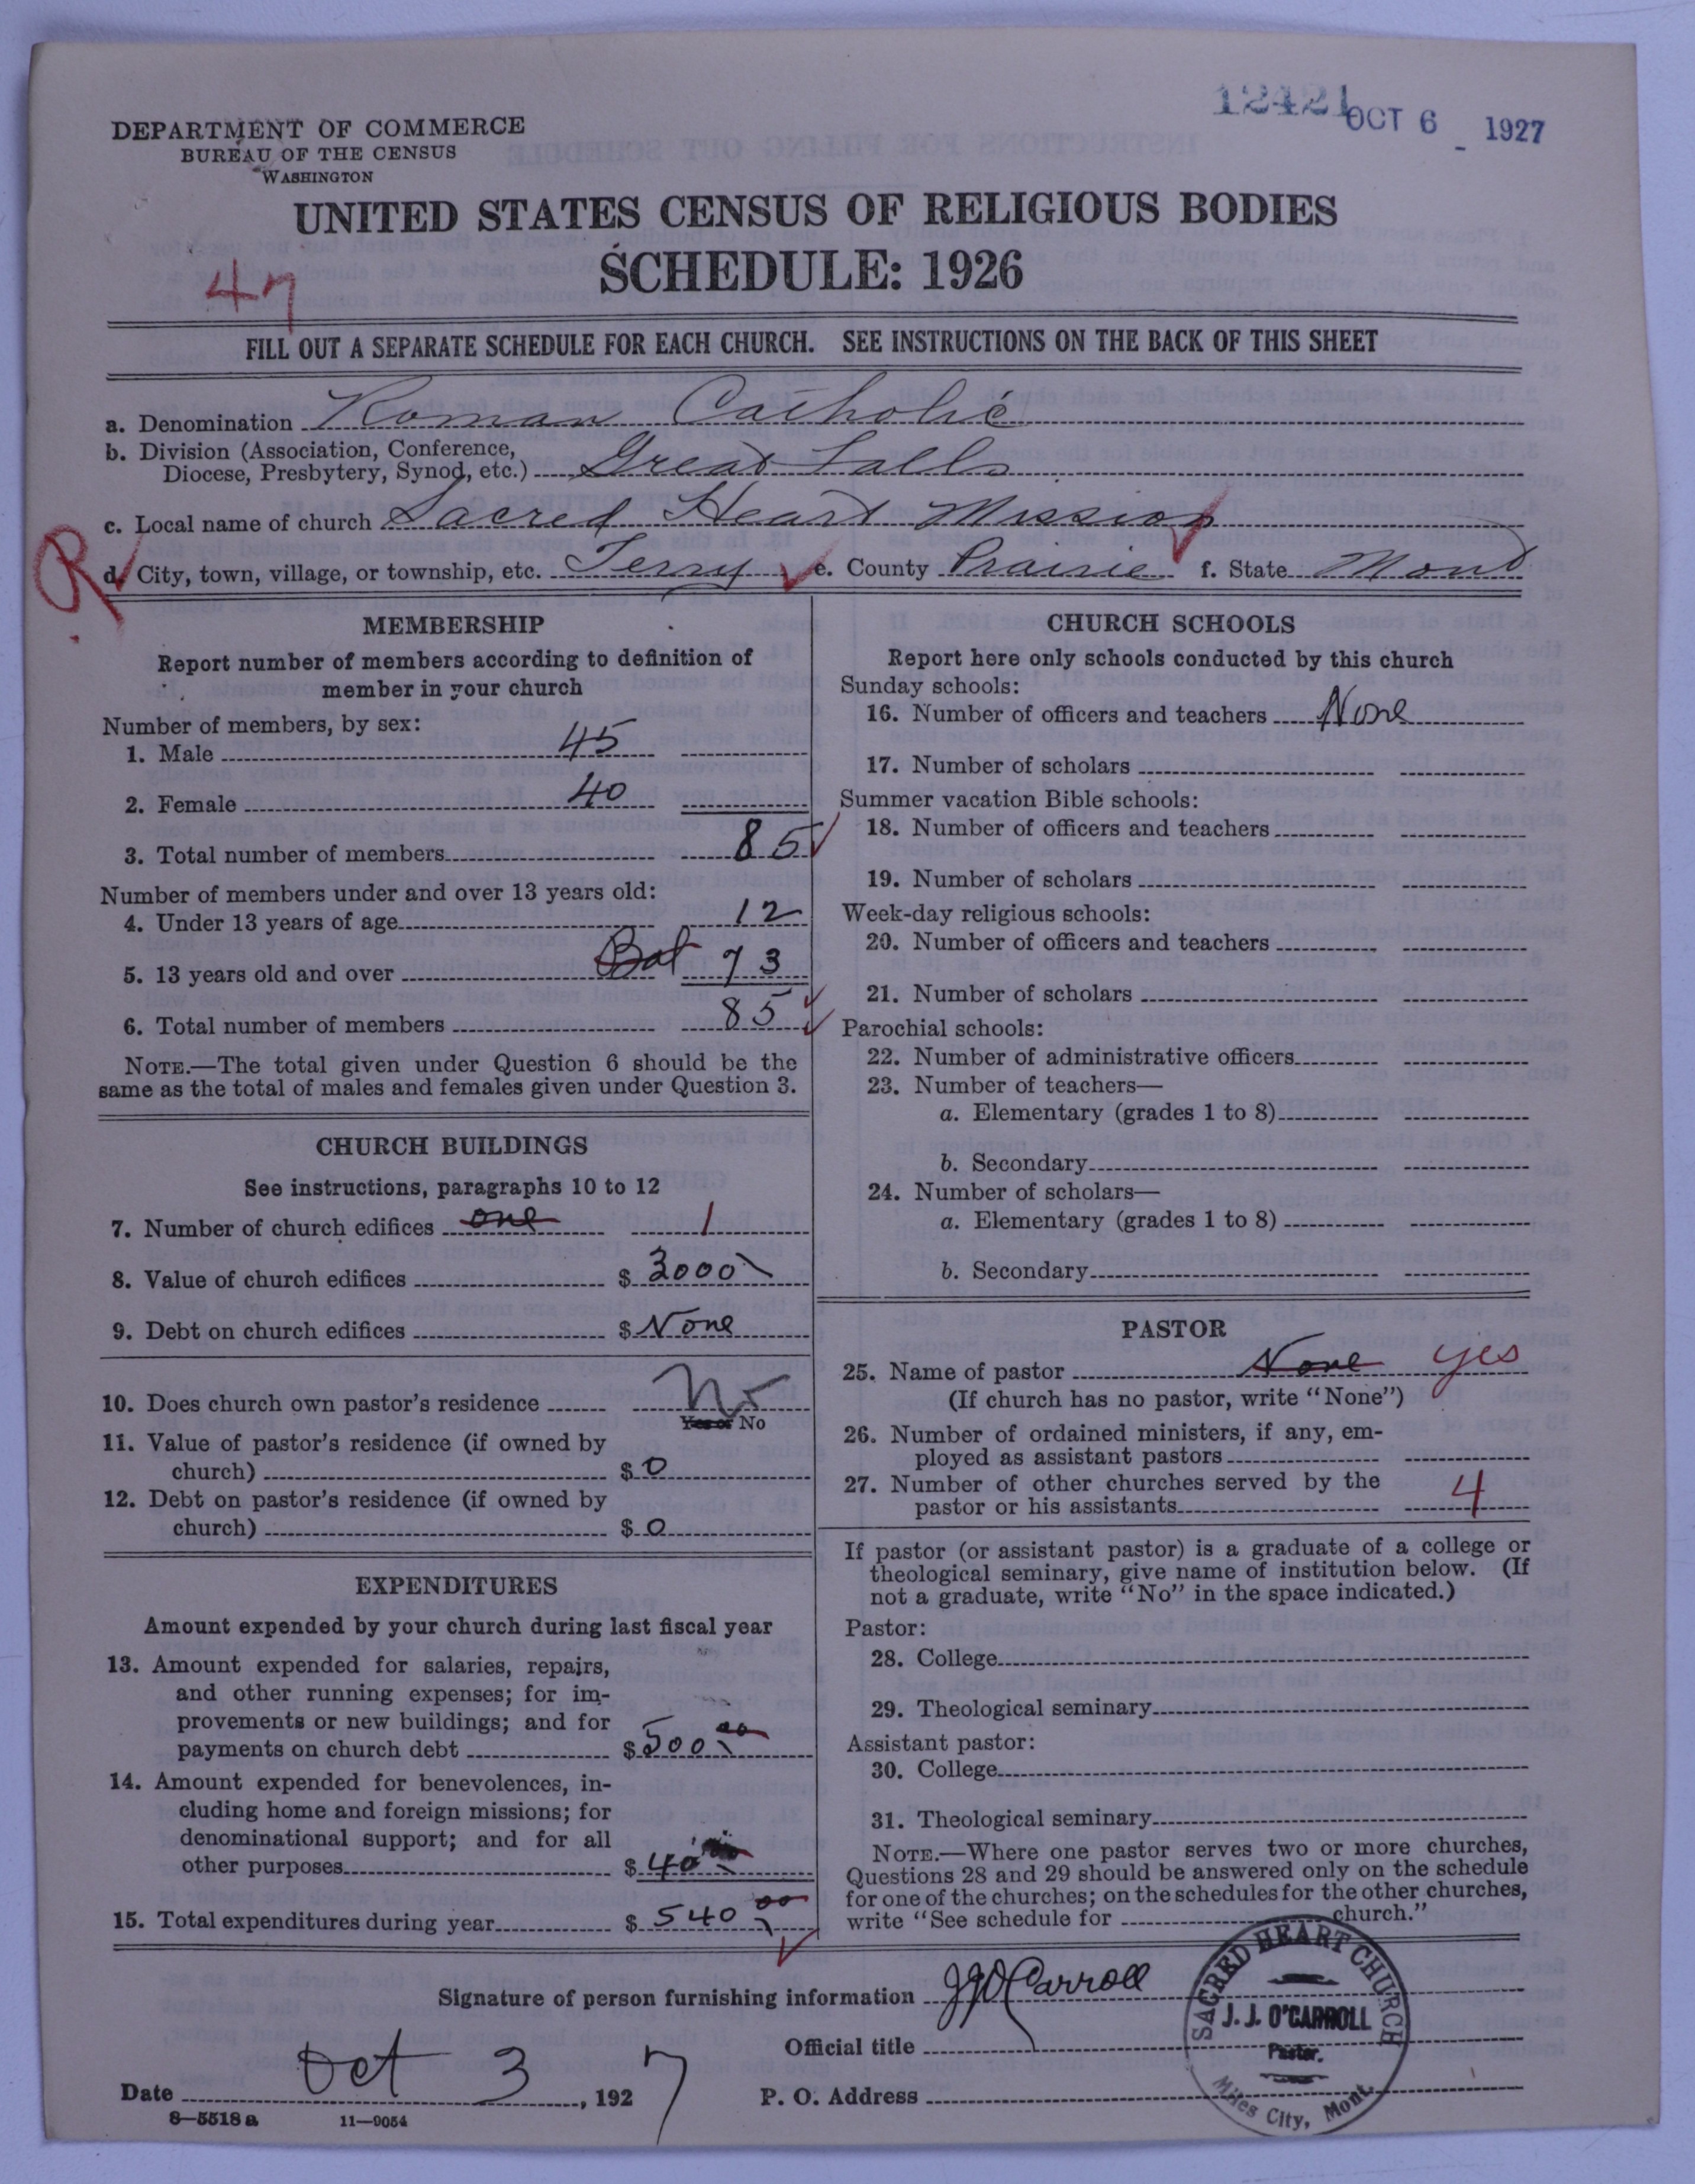 12421
OCT 6 1927
DEPARTMENT OF COMMERCE
BUREAU OF THE CENSUS
WASHINGTON
UNITED STATES CENSUS OF RELIGIOUS BODIES
SCHEDULE: 1926
47
FILL OUT A SEPARATE SCHEDULE FOR EACH CHURCH. SEE INSTRUCTIONS ON THE BACK OF THIS SHEET
a. Denomination Roman Catholic
b. Division (Association, Conference,
Diocese, Presbytery, Synod, etc.) Great Falls
c. Local name of church Sacred Heart Mission
R
d. City, town, village, or township, etc. Terry e. County Prairie f. State Mont
MEMBERSHIP
Report number of members according to definition of
member in your church
Number of members, by sex:
1. Male 45
2. Female 40
3. Total number of members 85
Number of members under and over 13 years old:
4. Under 13 years of age 12
5. 13 years old and over Bal 73
6. Total number of members 85
NOTE.—The total given under Question 6 should be the
same as the total of males and females given under Question 3.
CHURCH BUILDINGS
See instructions, paragraphs 10 to 12
7. Number of church edifices one 1
8. Value of church edifices $ 3000
9. Debt on church edifices $ None
10. Does church own pastor's residence No
Yes or No
11. Value of pastor's residence (if owned by
church) $ 0
12. Debt on pastor's residence (if owned by
church) $ 0
EXPENDITURES
Amount expended by your church during last fiscal year
13. Amount expended for salaries, repairs,
and other running expenses; for im-
provements or new buildings; and for
payments on church debt $ 500.00
14. Amount expended for benevolences, in-
cluding home and foreign missions; for
denominational support; and for all
other purposes $ 40
15. Total expenditures during year $ 540 00
CHURCH SCHOOLS
Report here only schools conducted by this church
Sunday schools:
16. Number of officers and teachers None
17. Number of scholars
Summer vacation Bible schools:
18. Number of officers and teachers
19. Number of scholars
Week-day religious schools:
20. Number of officers and teachers
21. Number of scholars
Parochial schools:
22. Number of administrative officers
23. Number of teachers—
a. Elementary (grades 1 to 8)
b. Secondary
24. Number of scholars—
a. Elementary (grades 1 to 8)
b. Secondary
PASTOR
25. Name of pastor None yes
(If church has no pastor, write "None")
26. Number of ordained ministers, if any, em-
ployed as assistant pastors
27. Number of other churches served by the
pastor or his assistants 4
If pastor (or assistant pastor) is a graduate of a college or
theological seminary, give name of institution below. (If
not a graduate, write "No" in the space indicated.)
Pastor:
28. College
29. Theological seminary
Assistant pastor:
30. College
31. Theological seminary
NOTE.—Where one pastor serves two or more churches,
Questions 28 and 29 should be answered only on the schedule
for one of the churches; on the schedules for the other churches,
write "See schedule for church."
Signature of person furnishing information JJO'Carroll
Official title
Date Oct 3, 1927
P. O. Address
SACRED HEART CHURCH
J. J. O'CARROLL
Pastor.
Miles City, Mont.
8—5518 a 11—9054